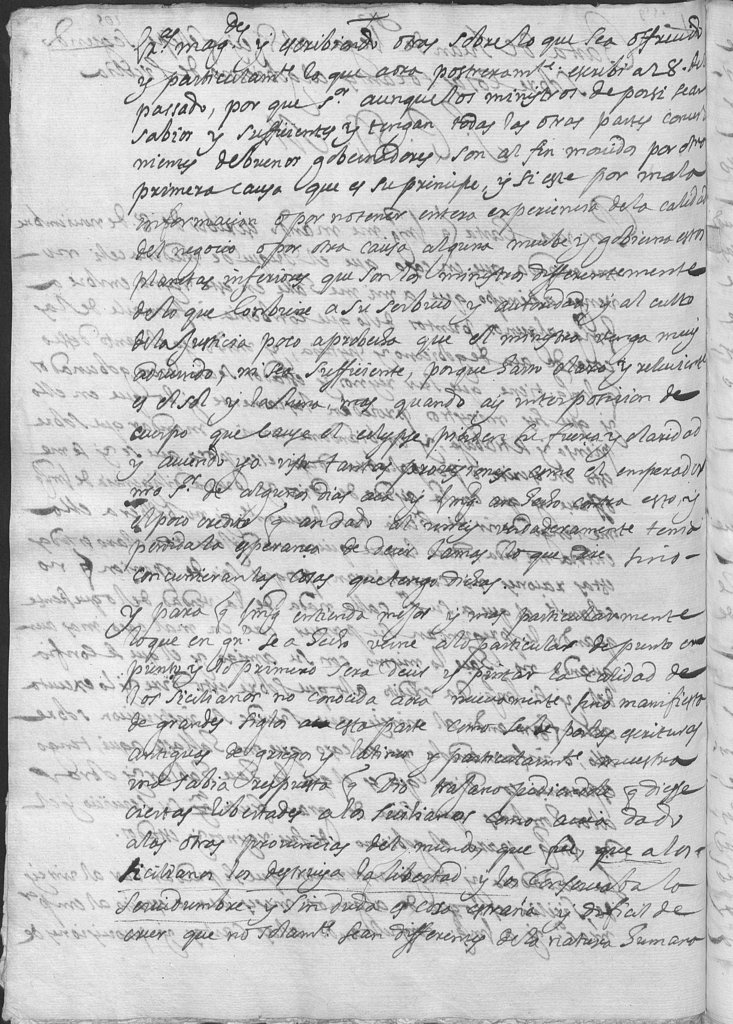 mag.des y escribiendo otras sobre lo que sea offrecido
y particularm.te lo que aora postreram.te escribi a 28. del
passado, por que s.r aunque los ministros de porsi sean
sabios y sufficientes y tengan todas las otras partes conue
nientes de buenos gobernadores, son al fin mouidos por otra
primera causa que es su principe, y si este por mala
informacion o por no tener entera experiencia de la calidad
del negocio o por otra causa alguna muebe y gobierna estos
planetas inferiores que son los ministros differentemente
de lo que conbiene a su serbicio y autoridad y al culto
de la Justicia poco aprobecha que el ministro tenga muy
ni sea sufficiente, porque harto claro y reluziente
es el sol y la luna, mas quando ay interposicion de
cuerpo que causa el eclypse pierden su fuerza y claridad
y auiendo yo visto tantas prouisiones como el emperador
n.ro s.r de algunos dias aca y v mag an hecho contra esto, y
el poco credito q an dado al virrey verdaderamente tenia
perdida la esperanza de dezir jamas lo que dire sino
concurrieran las cosas que tengo dichas
y para q v mag entienda mejor y mas particularmente
lo que en gn.l se a dicho verne a lo particular de punto en
punto y lo primero sera dezir y pintar la calidad de
los sicilianos no conocida aora nueuamente sino manifiesta
de grandes siglos a esta parte como se lee por las escrituras
antiguas de griegos y latinos y particularm.te se muestra
una sabia respuesta q dio trajano pidiendole q diesse
ciertas libertades a los sicilianos como auia dado
a las otras prouincias del mundo, que fue, que a los
sicilianos los destruya la libertad y los conseruaba la
seruidumbre, y sin duda es cosa estraña y dificil de
creer que no solam.te sean differentes de la natura humana